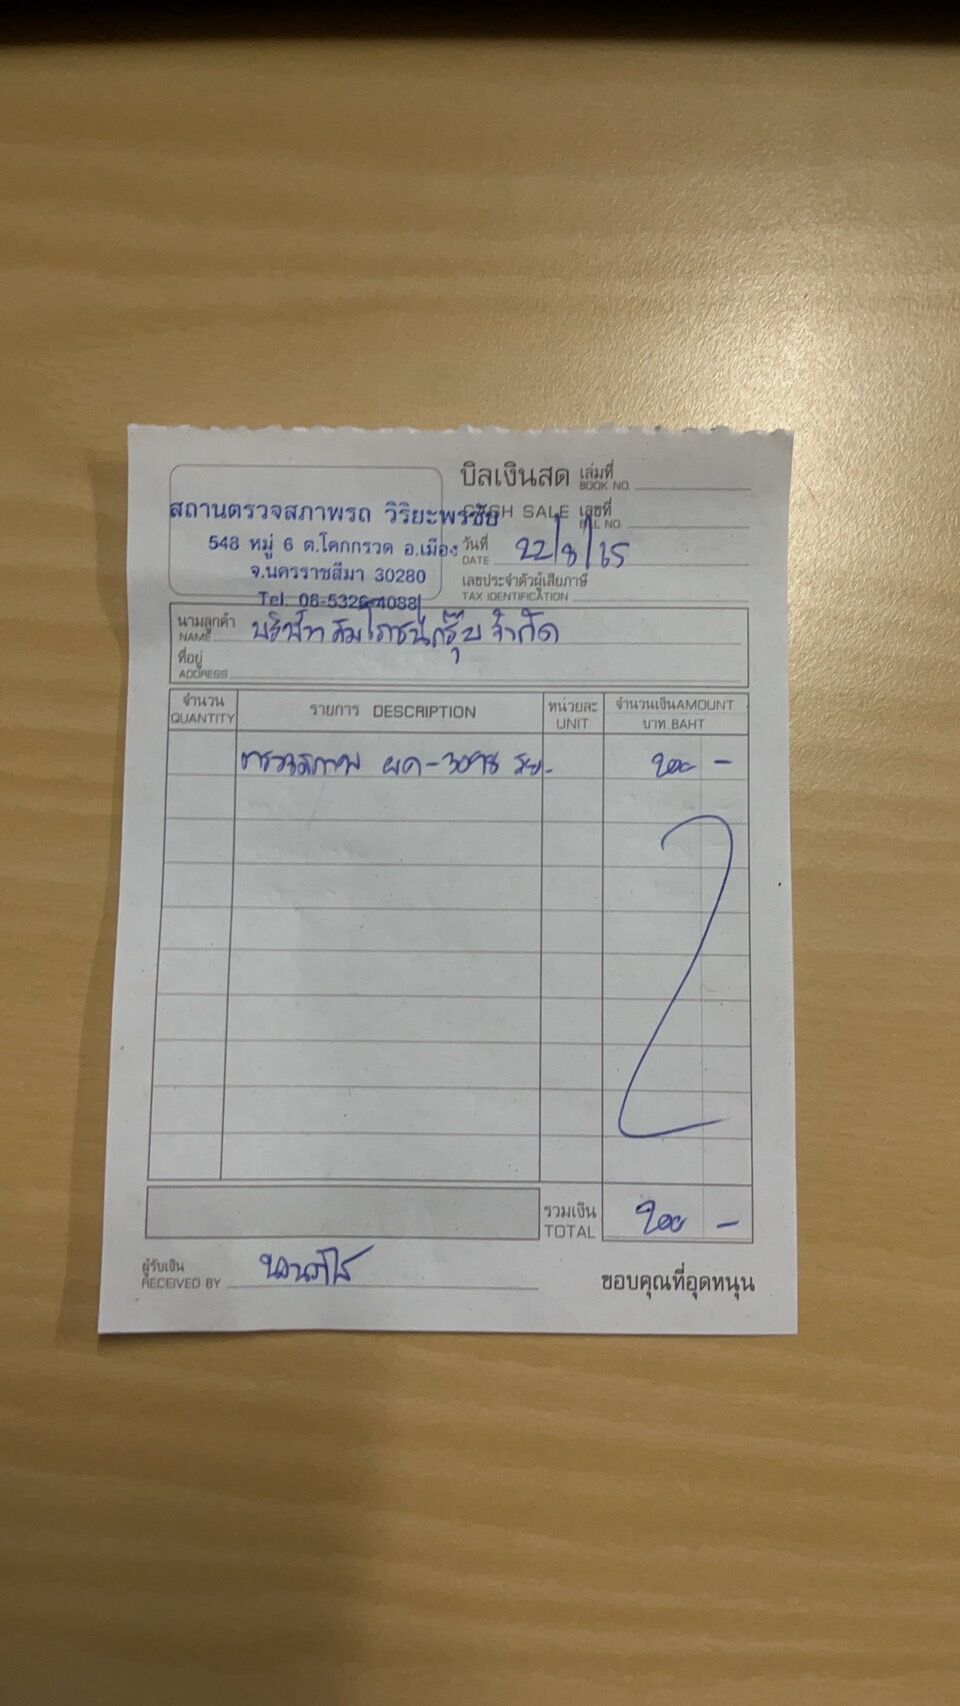 บิลเงินสด เล่มที่
BOOK NO.
สถานตรวจสภาพรถ วิริยะพรชัย
CASH SALE เลขที่
BILL NO.
548 หมู่ 6 ต.โคกกรวด อ.เมือง
วันที่ 22/8/65
DATE
จ.นครราชสีมา 30280
เลขประจำตัวผู้เสียภาษี
TAX IDENTIFICATION
Tel. 08-5326-4088
นามลูกค้า บริษัท จำกัด
NAME
ที่อยู่
ADDRESS
จำนวน รายการ DESCRIPTION หน่วยละ จำนวนเงินAMOUNT
QUANTITY UNIT บาท BAHT
ตรวจสภาพ ๒๐๐ -
รวมเงิน ๒๐๐ -
TOTAL
ผู้รับเงิน
RECEIVED BY
ขอบคุณที่อุดหนุน